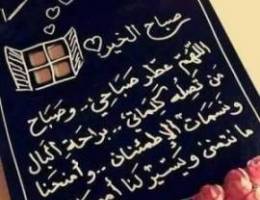 صباح الخير
اللهم عطر صباحي .. وصباح
من تصله كلماتي .. براحة البال
ونسمات الإطمئنان .. وأمنحنا
مانتمنى ويسر لنا